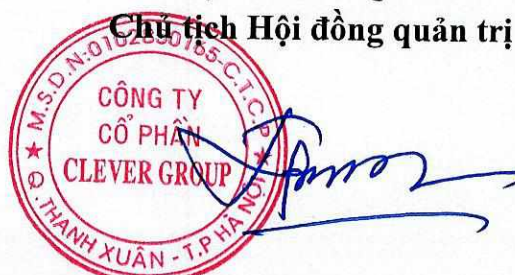 Chủ tịch Hội đồng quản trị
M.S.D.N:0102850165-C.T.C.P
CÔNG TY
CỔ PHẦN
CLEVER GROUP
Q.THANH XUÂN - T.P HÀ NỘI